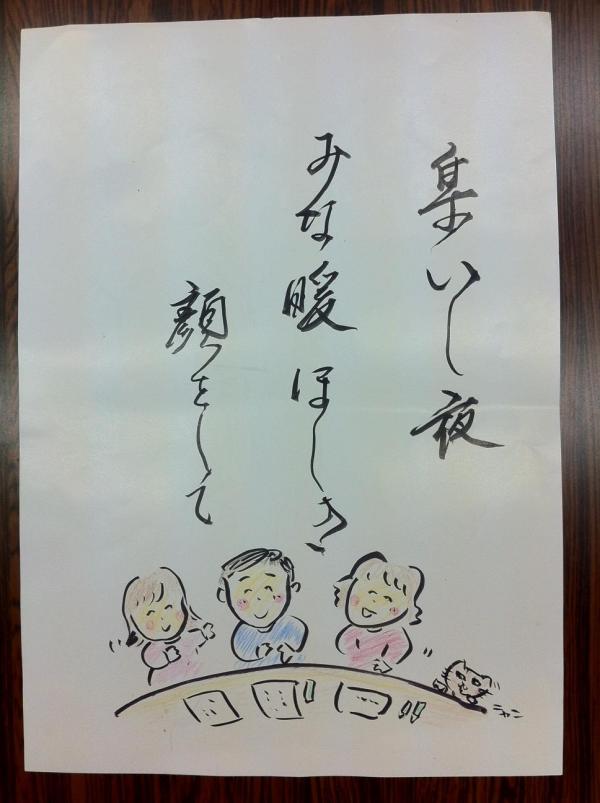 集いし夜
みな暖ほしき
顔をして
ニャン